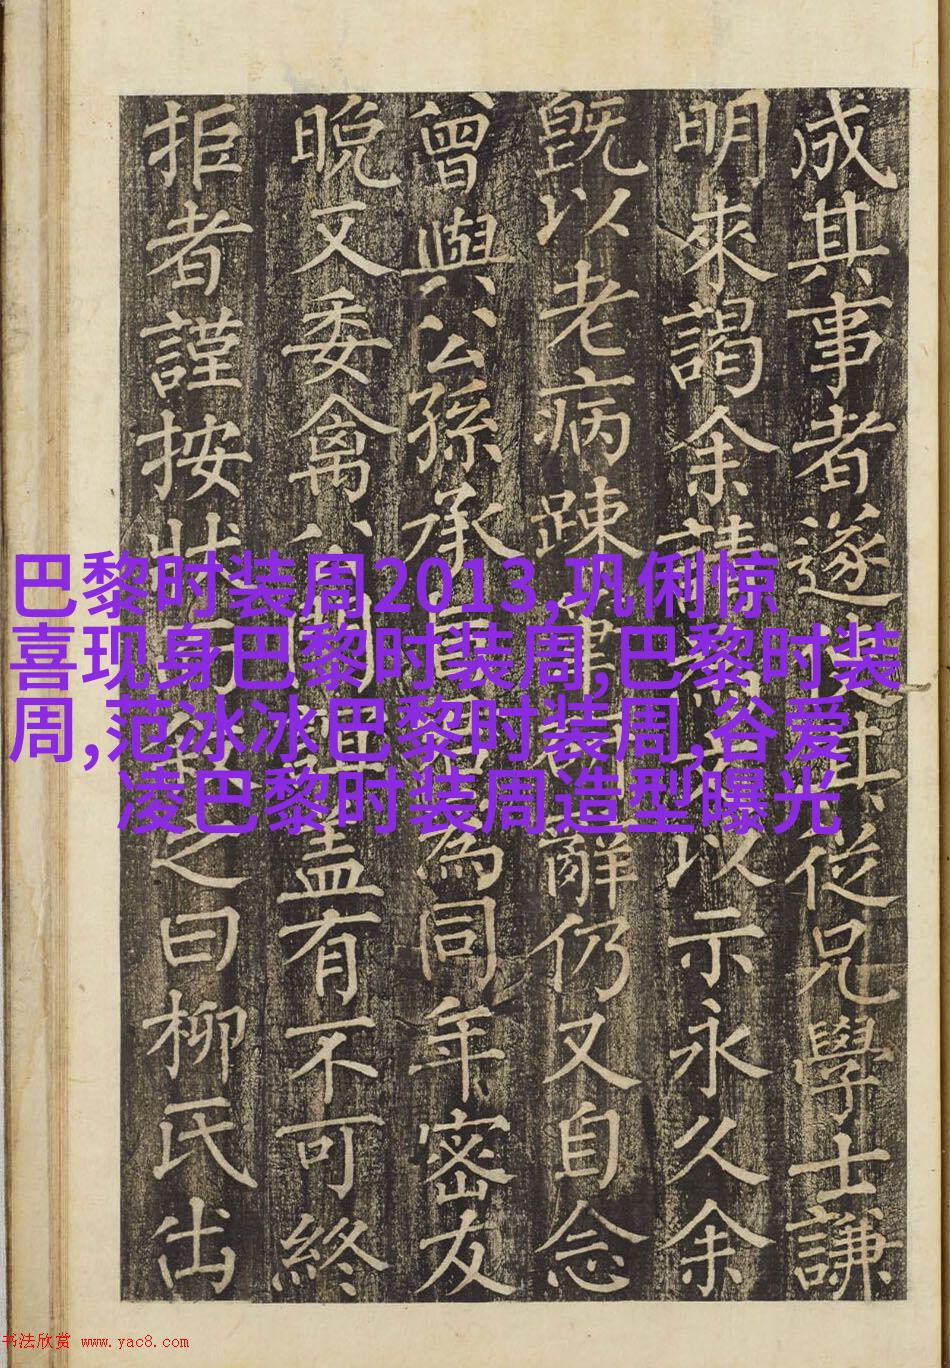 成其事者遂從兄學士謙
明來謁余請以示永久余
既以老病踈辭仍又自念
曾與公孫承為同年密友
晚又委禽盖有不可終
拒者謹按狀之曰柳氏出
巴黎时装周2013,巩俐惊
喜现身巴黎时装周,巴黎时装
周,范冰冰巴黎时装周,谷爱
凌巴黎时装周造型曝光
书法欣赏 www.yac8.com